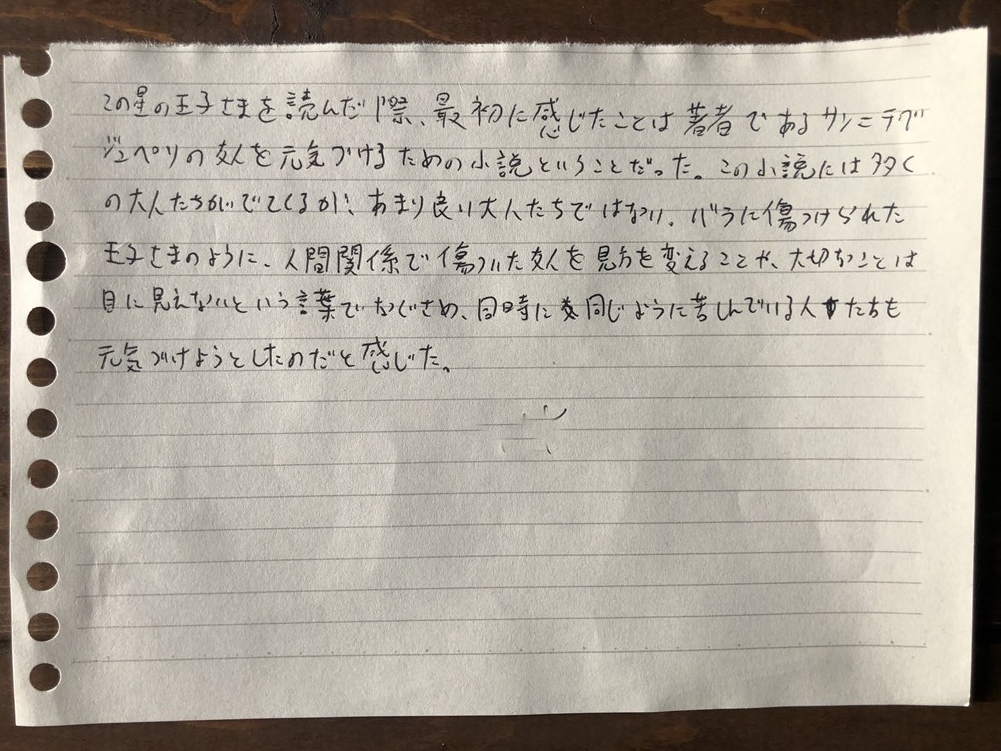 この星の王子さまを読んだ際、最初に感じたことは著者であるサンニテグ
ジュペリの友人を元気づけるための小説ということだった。この小説には多く
の大人たちがでてくるが、あまり良い大人たちではない。バラに傷つけられた
王子さまのように、人間関係で傷ついた友人を見方を変えることや、大切なことは
目に見えないという言葉でなぐさめ、同時に同じように苦しんでいる人たちも
元気づけようとしたのだと感じた。